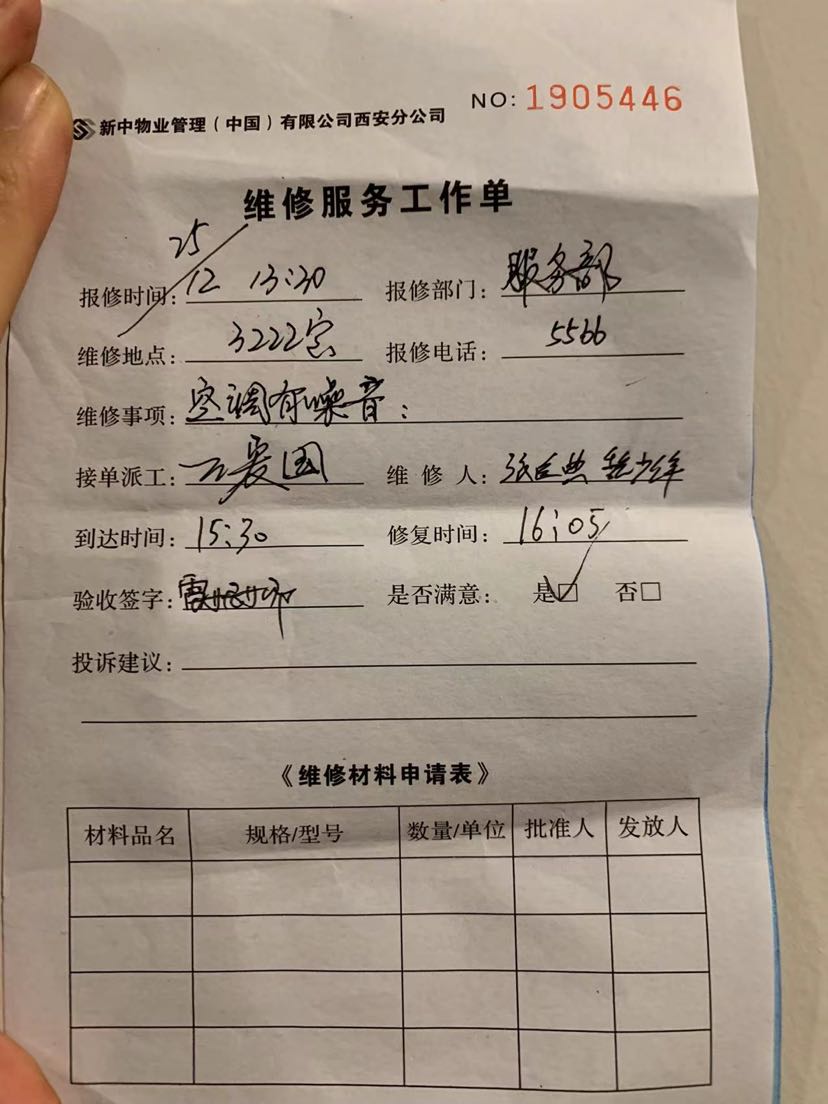 新中物业管理（中国）有限公司西安分公司 NO: 1905446
维修服务工作单
报修时间: 25/12 13:30 报修部门: 服务部
维修地点: 3222室 报修电话: 5566
维修事项: 空调有噪音:
接单派工: 爱国 维修人:
到达时间: 15:30 修复时间: 16:05
验收签字: 是否满意: 是☑ 否□
投诉建议:
《维修材料申请表》
材料品名 规格/型号 数量/单位 批准人 发放人